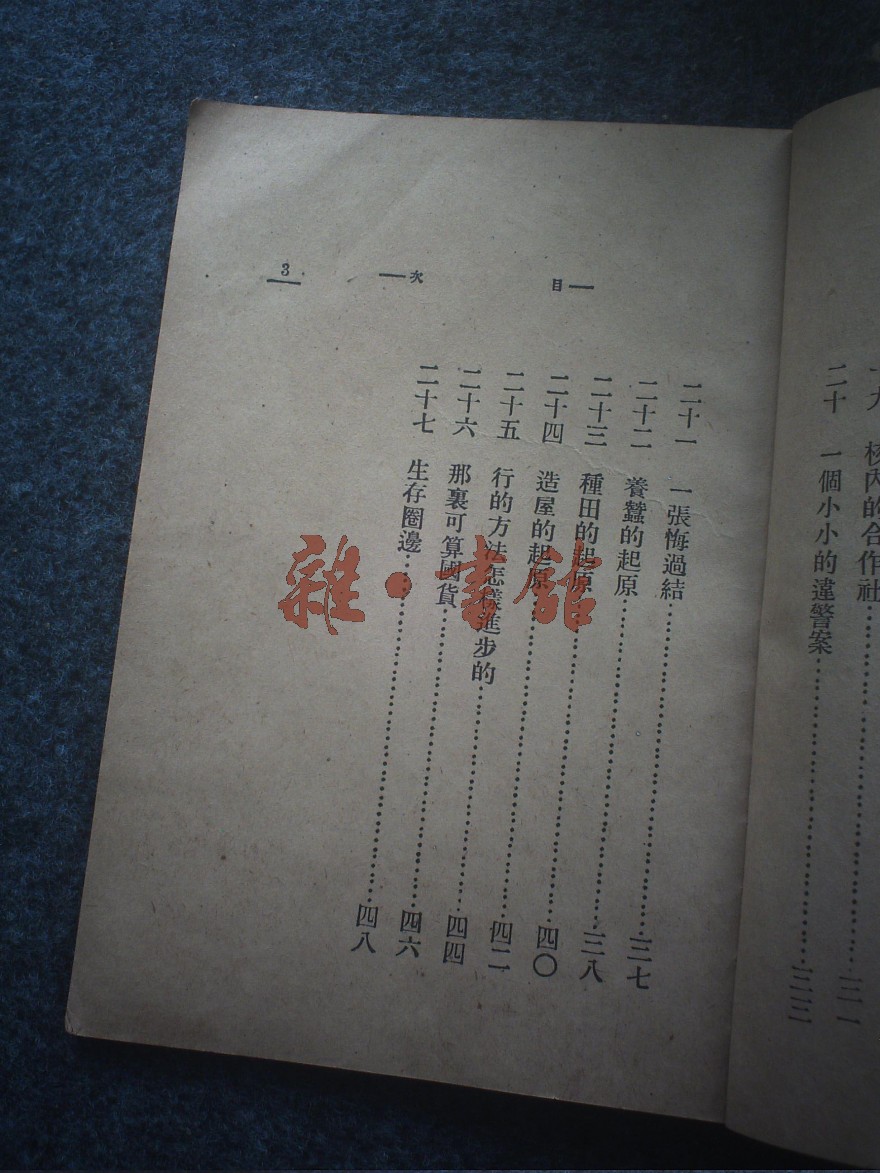 校內的合作社
二十　一個小小的違警案……三三
目　次
3
二十一　一張悔過結……三七
二十二　養蠶的起原……三八
二十三　種田的起原……四〇
二十四　造屋的起原……四二
二十五　行的方法怎樣進步的……四四
二十六　那裏可算國貨……四六
二十七　生存圈邊……四八
雜·書館